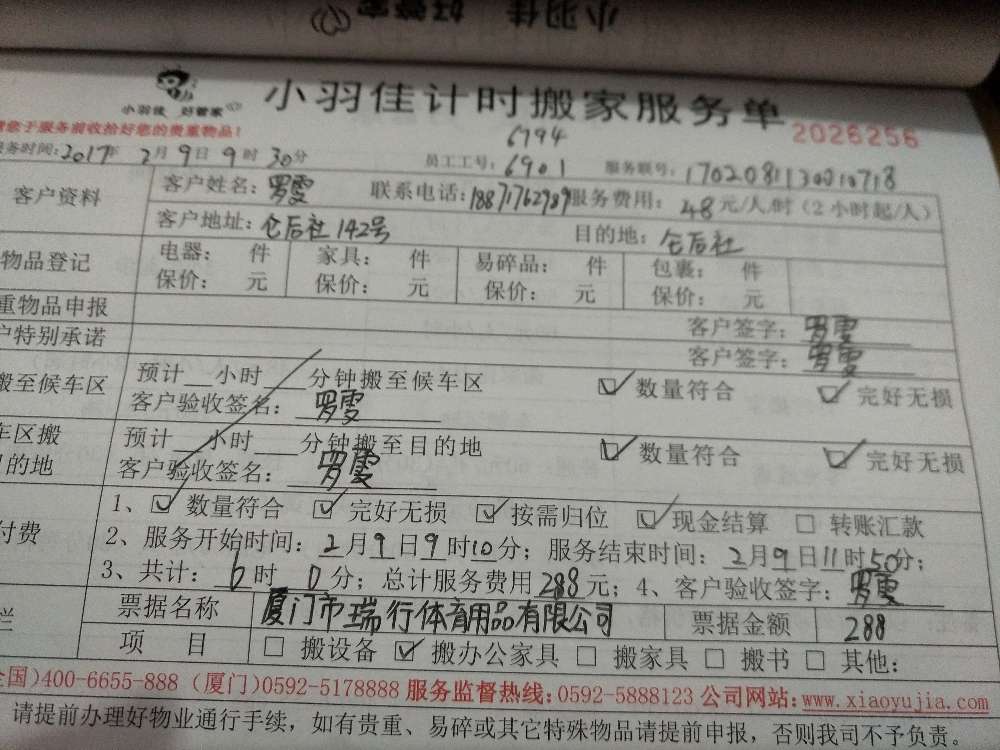 小羽佳 好管家
小羽佳 好管家
小羽佳计时搬家服务单
2026256
请您于服务前收拾好您的贵重物品!
6794
服务时间:2017年 2月9日9时30分 员工工号:6901 服务联号:1702081130010718
客户资料 客户姓名: 联系电话:18871762989 服务费用:48元/人/时(2小时起/人)
客户地址:仑后社142号 目的地:仑后社
物品登记 电器: 件 家具: 件 易碎品: 件 包裹: 件
保价: 元 保价: 元 保价: 元 保价: 元
重物品申报 客户签字:
户特别承诺 客户签字:
搬至候车区 预计__小时__分钟搬至候车区 ☑数量符合 ☑完好无损
客户验收签名:
车区搬 预计__小时__分钟搬至目的地 ☑数量符合 ☑完好无损
目的地 客户验收签名:
1、☑数量符合 ☑完好无损 ☑按需归位 ☑现金结算 □转账汇款
付费 2、服务开始时间:2月9日9时10分;服务结束时间:2月9日11时50分;
3、共计:6时0分;总计服务费用288元;4、客户验收签字:
栏 票据名称 厦门市瑞行体育用品有限公司 票据金额 288
项目 □搬设备 ☑搬办公家具 □搬家具 □搬书 □其他:
全国)400-6655-888 (厦门)0592-5178888 服务监督热线:0592-5888123 公司网站:www.xiaoyujia.com
请提前办理好物业通行手续,如有贵重、易碎或其它特殊物品请提前申报,否则我司不予负责。